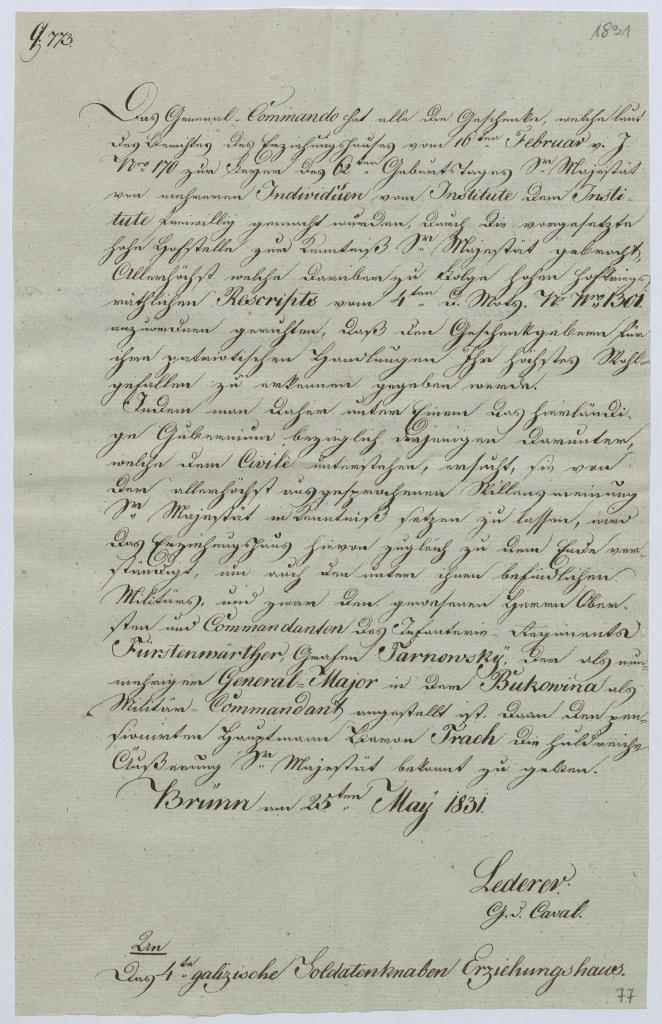 g. 773.
1831
Das General-Commando hat alle die Geschenke, welche laut
des Berichtes des Erziehungshauses vom 16ten Februar v. J.
Nro 170 zur Feyer des 62ten Geburts Tages Sr Majestät
von mehreren Individuen vom Institute dem Insti-
tute freiwillig gemacht wurden, durch die vorgesetzte
hohe Hofstelle zur Kenntniß Sr Majestät gebracht,
Allerhöchst welche darüber zu Folge hohen Hofkriegs
räthlichen Rescripts vom 4ten d. Mots. Nro 1301
anzuordnen geruhten, daß den Geschenkgebern für
ihre patriotischen Handlungen Ihr höchstes Wohl-
gefallen zu erkennen gegeben werde.
Indem man daher unter Einem das hierländi-
ge Gubernium bezüglich derjenigen darunter,
welche dem Civile unterstehen, ersucht, sie von
der allerhöchst ausgesprochenen Willensmeinung
Sr Majestät in Kenntniß setzen zu lassen, wird
das Erziehungshaus hievon zugleich zu dem Ende ver-
ständigt, um auch den unter ihnen befindlichen
Militärs, und zwar dem gewesenen Herrn Ober-
sten und Commandanten des Infanterie-Regiments
Fürstenwärther, Grafen Tarnowsky, der als nun-
mehriger General-Major in der Bukowina als
Militär-Commandant angestellt ist, dann dem pen-
sionirten Hauptmann Baron Trach die huldreiche
Äußerung Sr Majestät bekannt zu geben.
Brünn am 25ten May 1831.
Lederer
G. d. Caval.
An
Das 4te galizische Soldatenknaben Erziehungshaus.
77